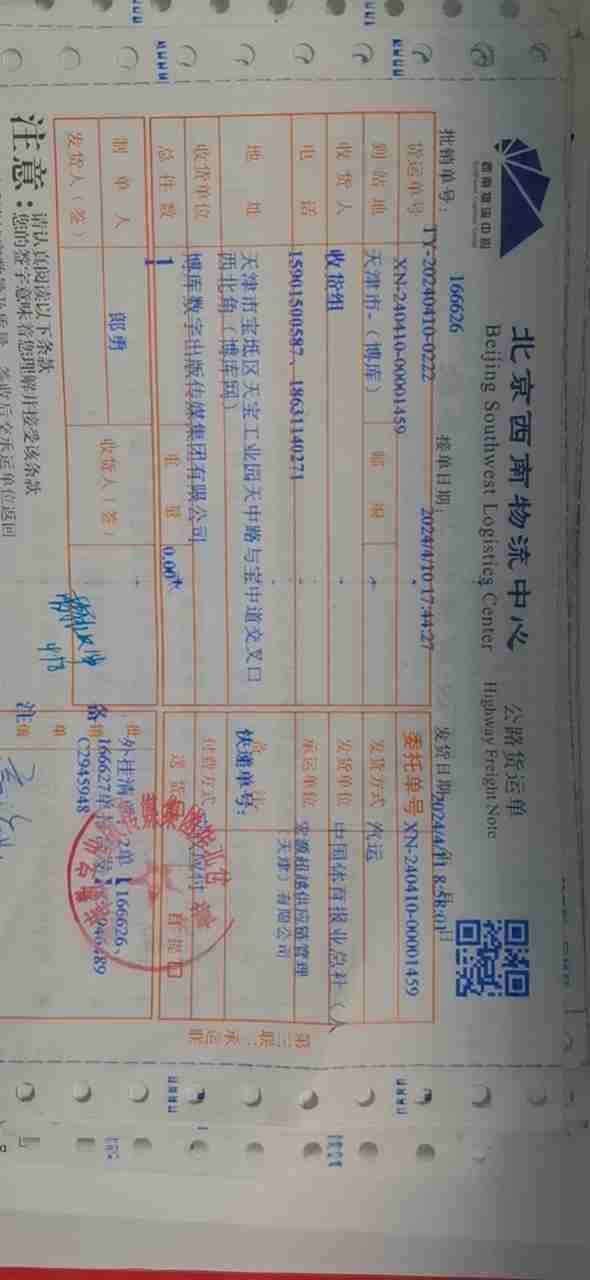 西南物流中心
北京西南物流中心
Beijing Southwest Logistics Center
公路货运单
Highway Freight Note
166626
批销单号： TY-20240410-0222
接单日期： 2024/4/10 17:44:27
发货日期 2024/4/11 8:58:01
货运单号 XN-240410-00001459
委托单号 XN-240410-00001459
到站地 天津市-（博库）
邮编
发货方式 汽运
收货人 收货组
发货单位 中国体育报业总社（人
电话 15901500587、18631140271
承运单位 超越供应链管理
（天津）有限公司
地址 天津市宝坻区天宝工业园天中路与宝中道交叉口
西北角（博库网）
快递单号：
收货单位 博库数字出版传媒集团有限公司
付费方式
总件数 1
重量 0.00
送货
自提
制单人 郎勇
收货人（签）
发货人（签）
4/13
备注
外挂清
2单【166626、
166627单
(C2945948
第三联：承运联
注意：
请认真阅读以下条款
您的签字意味着您理解并接受该条款